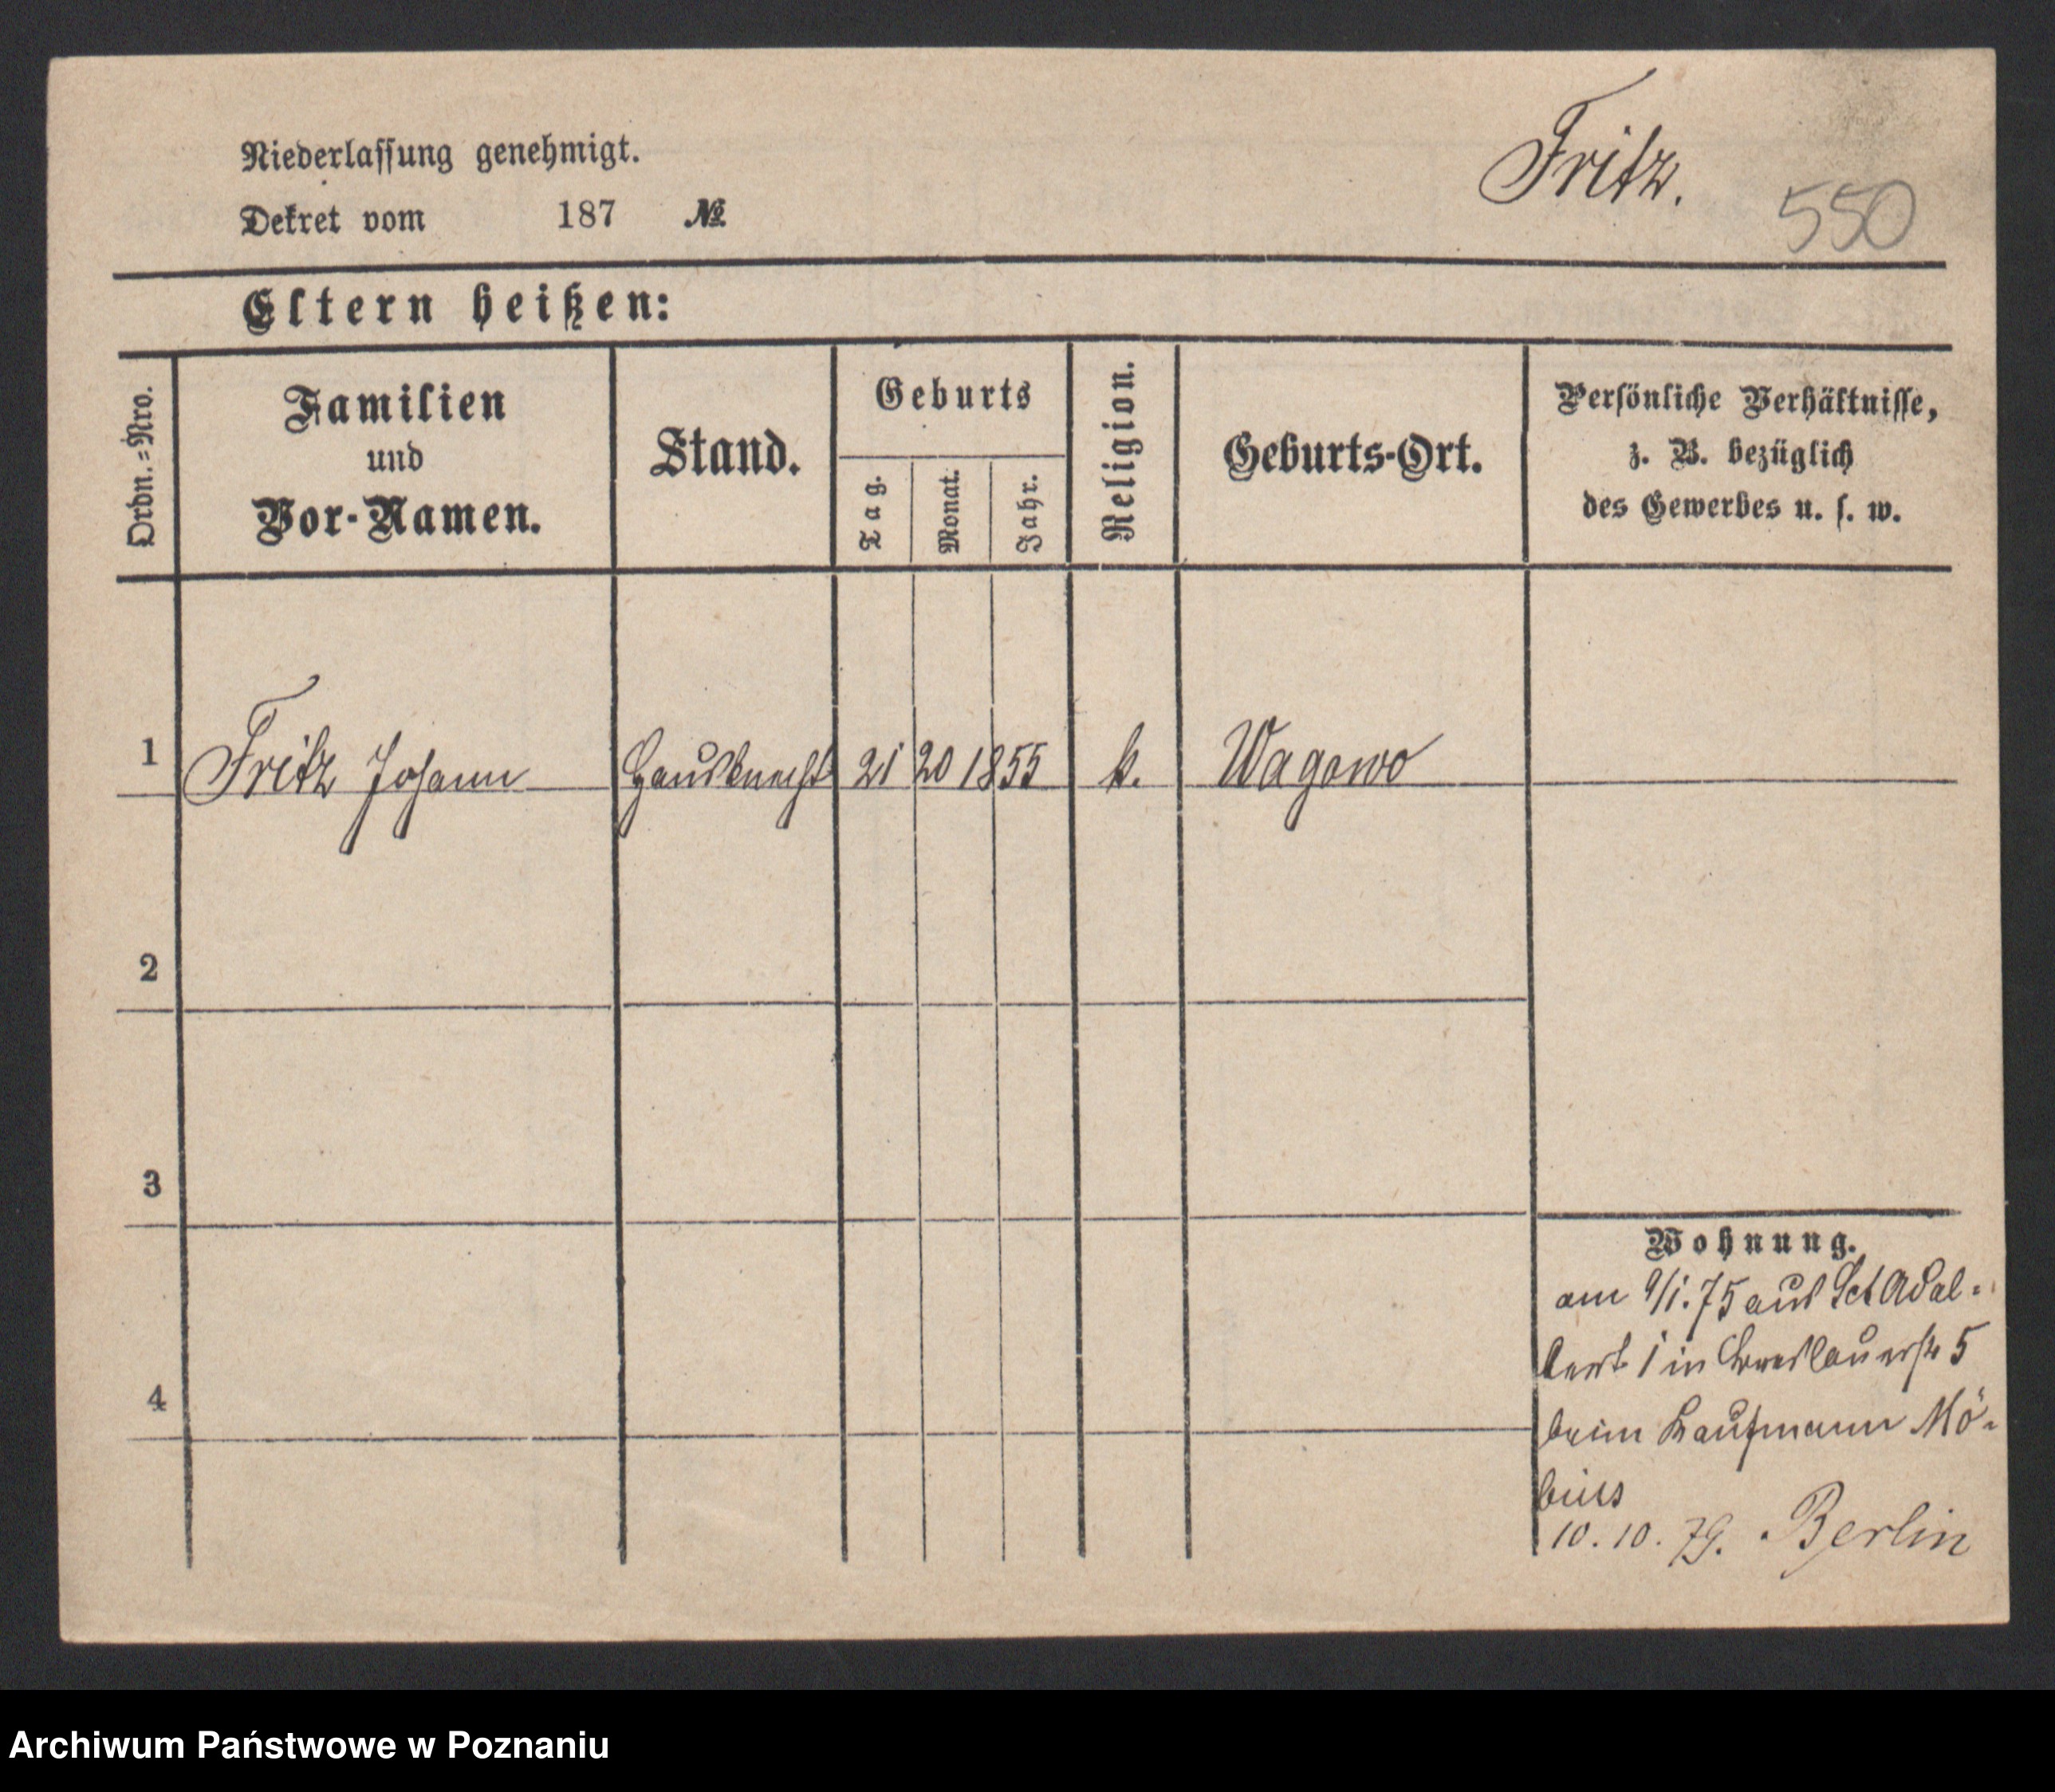 Niederlassung genehmigt.
Fritz.
550
Dekret vom 187 №
Eltern heißen:
Ordn.=Nro.
Familien
und
Vor-Namen.
Stand.
Geburts
Tag.
Monat.
Jahr.
Religion.
Geburts-Ort.
Persönliche Verhältnisse,
z. B. bezüglich
des Gewerbes u. s. w.
1 Fritz Johann Hausknecht 21 20 1855 k. Wagowo
2
3
4
Wohnung.
am 9/1. 75 aus Sct Adal=
bert 1 in Breslauerstr 5
beim Kaufmann Mö=
bius
10. 10. 79. Berlin
Archiwum Państwowe w Poznaniu